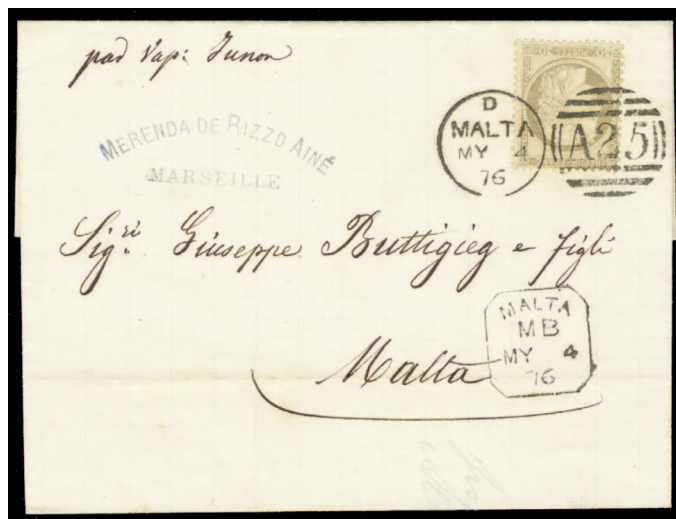 pad Vap: Junon
MERENDA DE RIZZO AINÉ
MARSEILLE
D
MALTA
MY 4
76
A25
Sig.ri Giuseppe Buttigieg e figli
Malta
MALTA
MB
MY 4
76